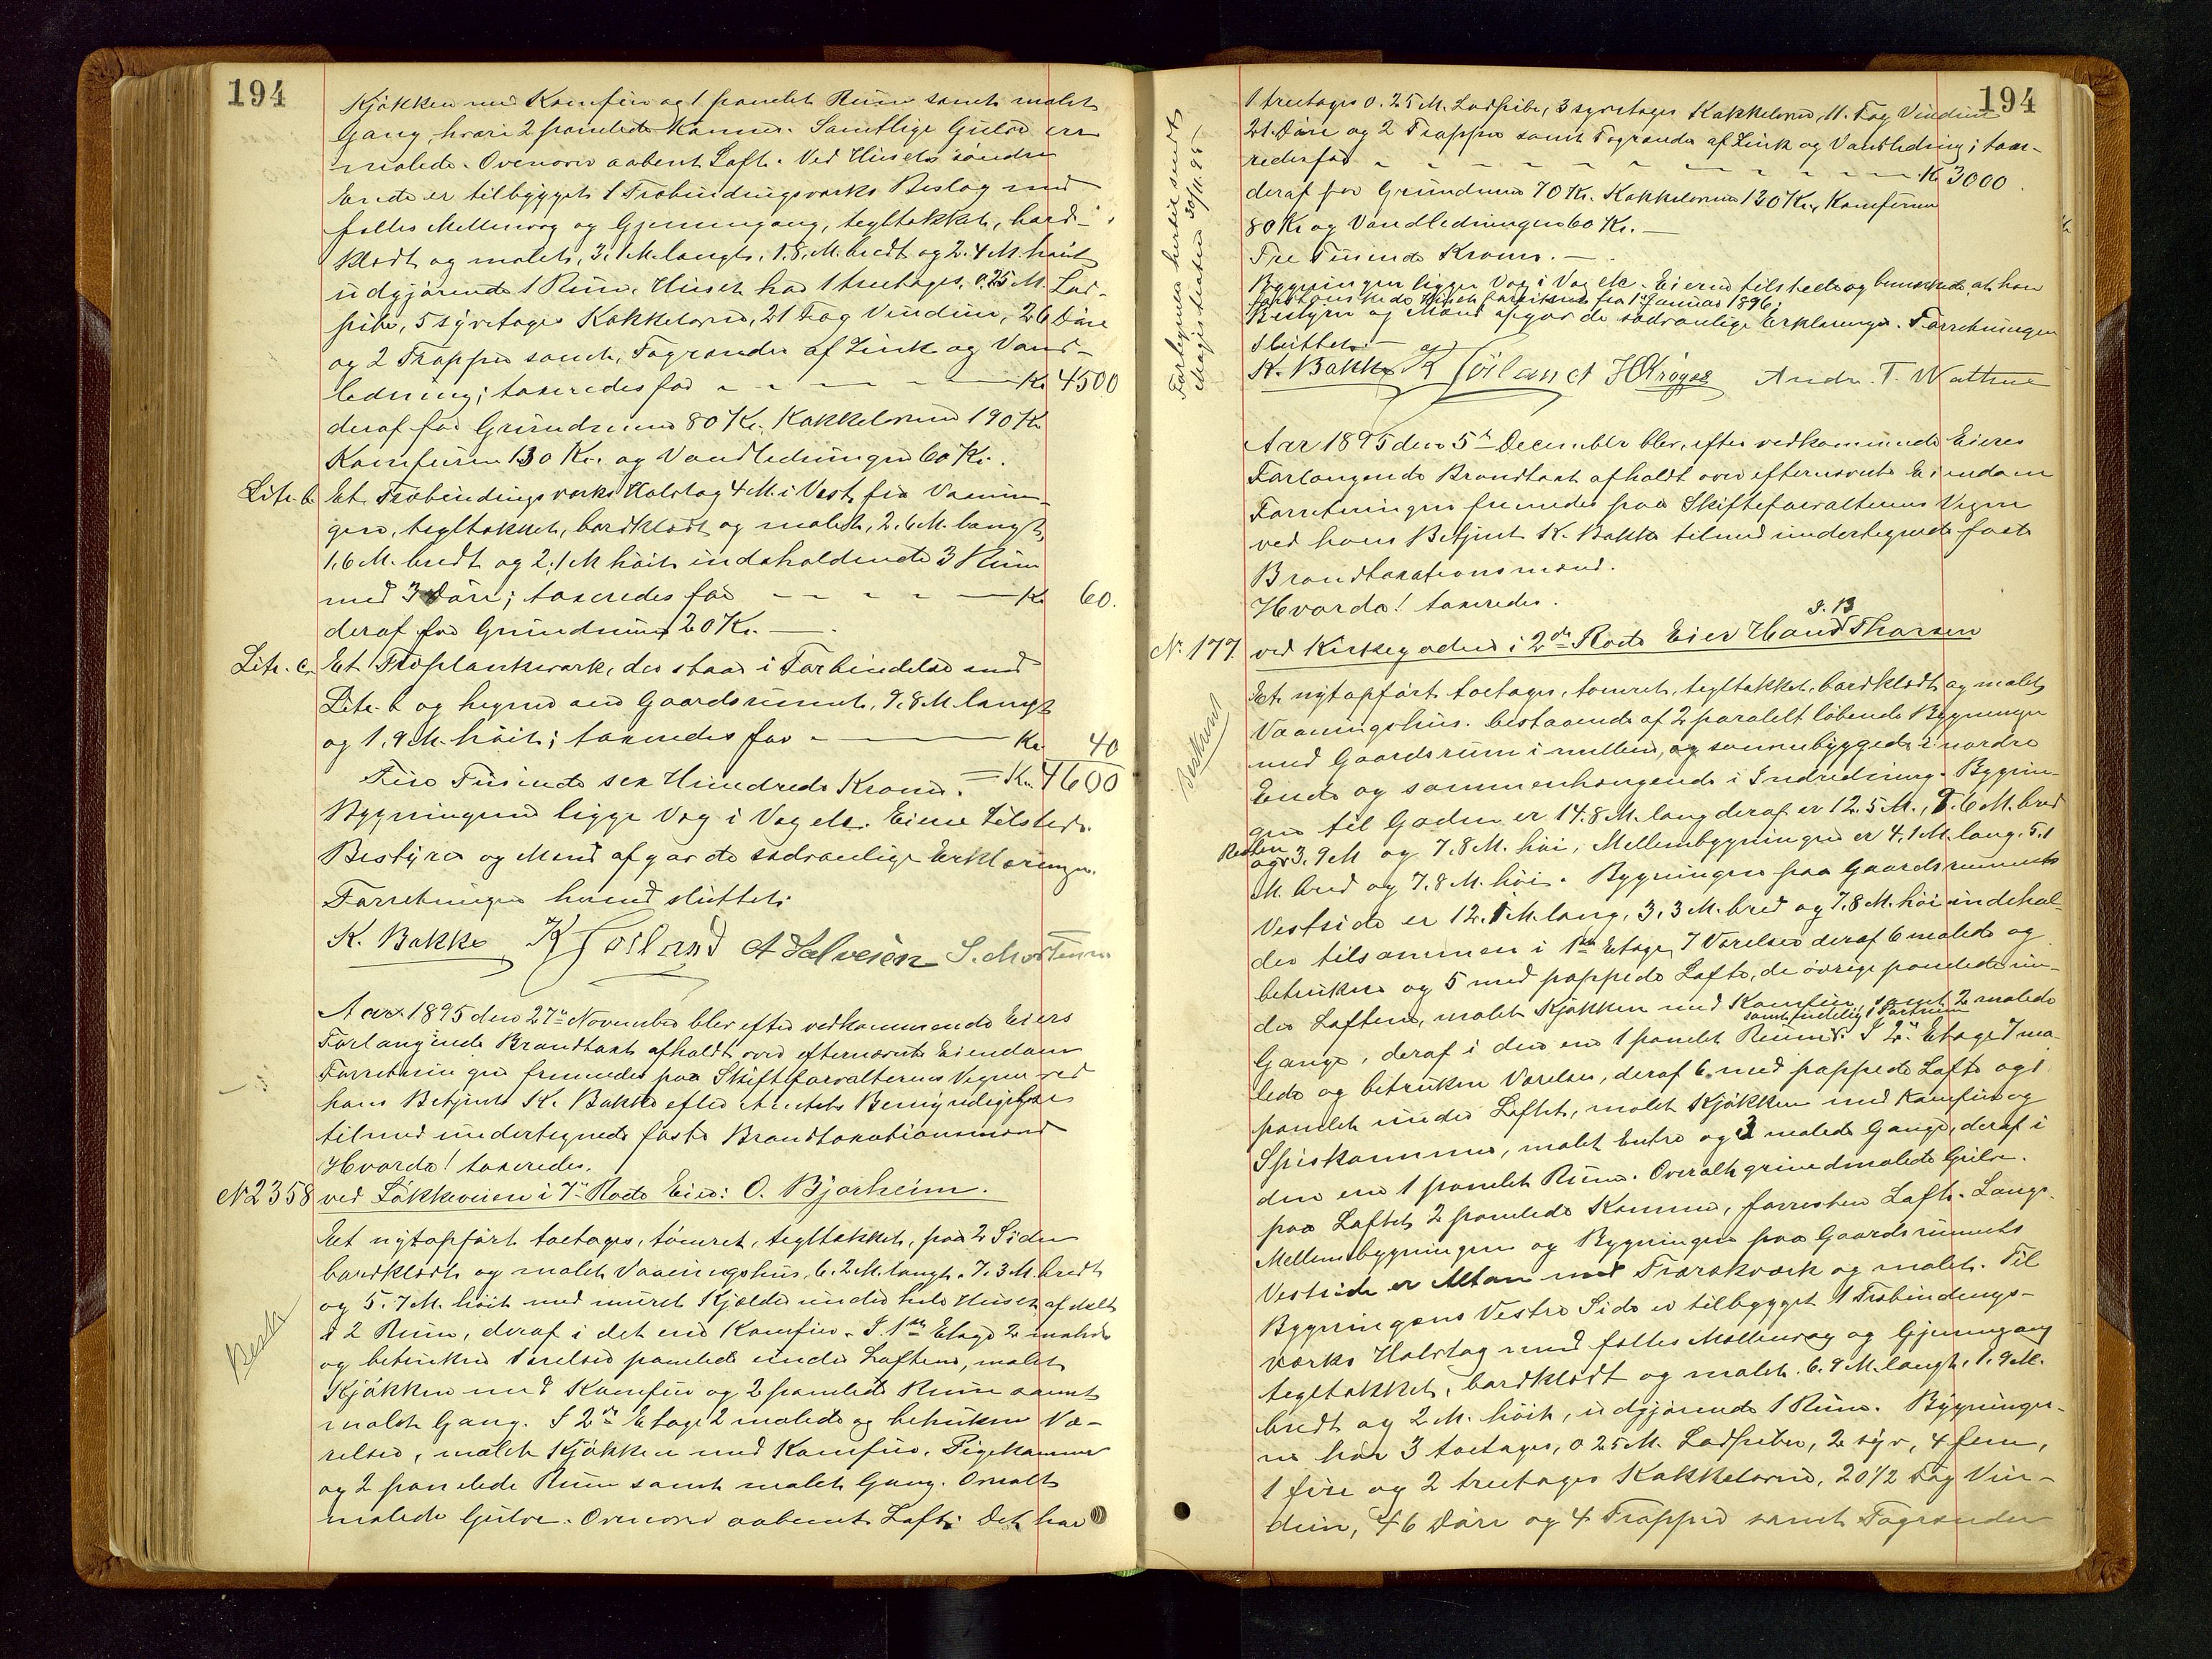 194
Kjøkken med Komfür og 1 panelet Rüm samt malet
Gang, hvori 2 panelede Kammer. Samtlige Gülve ere
malede. Ovenover aabent Loft. Ved Hüsets søndre
Ende er tilbygget 1 Træbindingsværks Bislag med
fælles Mellemvæg og Gjennemgang, tegltækket, bord-
klædt og malet, 3,1 M. langt, 1.8 M. bredt og 2.4 M. høit
üdgjørende 1 Rüm. Hüset har 1 treetages, 0.25 M. Lod-
pibe, 5 syvetages Kakkelovne, 21 Fag Vindüer, 26 Døre
og 2 Trapper samt Tagrender af Zink og Vand-
ledning; taxeredes for - - - - Kr 4500
deraf for Gründmuren 80 Kr. Kakkelovnene 190 Kr
Komfürene 130 Kr. og Vandledningen 60 Kr.
Litr. b. Et Træbindingsværks Halvtag 4 M. i Vest fra Vaanin-
gen, tegltækket, bordklædt og malet, 2.6 M. langt,
1,6 M. bredt og 2,1 M høit indeholdende 3 Rüm
med 3 Døre; taxeredes for - - - - - Kr 60.
deraf for Gründmüren 20 Kr.
Litr. c. Et Træplankeværk, der staar i Forbindelse med
Litr. b og hegner om Gaardsrummet, 9,8 M. langt
og 1,9 M. høit; taxeredes for - Kr 40
Fire Tüsinde sex Hündrede Kroner. = Kr. 4600
Bygningerne ligge Væg i Væg etc. Eieren tilstede.
Bestyrer og Mænd afgav de sædvanlige Erklæringer.
Forretningen hermed slüttet.
K. Bakke K Soiland A Salvesen S. Mortensen
Aar 1895 den 27de November blev efter vedkommende Eiers
Forlangende Brandtaxt afholdt over efternævnte Eiendom
Forretningen fremmedes paa Skifteforvalterens Vegne ved
hans Betjent K. Bakke efter Amtets Bemyndigelse
tilmed undertegnede faste Brandtaxationsmænd
Hvorda! taxeredes.
No 2358 ved Løkkeveien i 7de Rode Eier: O. Bjørheim.
Et nýtopført toetages, tømret, tegltækket, paa 2 Sider
bordklædt og malet Vaaningshüs, 6.2 M. langt, 7.3 M. bredt
og 5.7 M. høit med müret Kjælder ünder hele Hüset, afdelt
i 2 Rüm, deraf i det ene Komfür. I 1ste Etage 2 malede
og betrukne Værelser panelede ünder Loftene, malet
Kjøkken med Komfür og 2 panelede Rüm samt
malet Gang. I 2den Etage 2 malede og betrukne Væ-
relser, malet Kjøkken med Komfür, Pigekammer
og 2 panelede Rüm samt malet Gang. Overalt
malede Gülve. Ovenover aabent Loft. Det har
194
Fortegnelse hertil sendt
Magistraten 30/11 95
1 treetages 0.25 M. Lodpibe, 3 syvetages Kakkelovne, 11 Fag Vindüer
21 Døre og 2 Trapper samt Tagrender af Zink og Vandledning; taxe-
redes for - - - - - Kr 3000.
deraf for Gründmuren 70 Kr. Kakkelovnene 130 Kr., Komfürene
80 Kr og Vandledningen 60 Kr.
Tre Tüsinde Kroner.
Bygningen ligger Væg i Væg etc. Eieren tilstede og bemærkede, at han
forlangte Hüset forsikret fra 1ste Januar 1896.
Bestyrer og Mænd afgav de sædvanlige Erklæringer. Forretningen
slüttet.
K. Bakke K Soiland H Krøger Andr. T. Wathne
Aar 1895 den 5te December blev, efter vedkommende Eieres
Forlangende Brandtaxt afholdt over efternævnte Eiendom
Forretningen fremmedes paa Skifteforvalterens Vegne
ved hans Betjent K. Bakke tilmed undertegnede faste
Brandtaxationsmænd.
Hvorda! taxeredes.
No. 177 ved Kirkegaden i 2den Rode Eier Hans Thorsen
Bestemt
Et nýtopført toetages, tømret, tegltækket, bordklædt og malet
Vaaningshüs, bestaaende af 2 paralelt løbende Bygninger
med Gaardsrüm i mellem, og sammenbyggede i nordre
Ende og sammenhængende i Indredning. Bygnin-
gen til Gaden er 14.8 M. lang deraf er 12.5 M., 8.6 M. bred
Resten 3.9 M og 7.8 M. høi, Mellembygningen er 4.1 M. lang, 5.1
M. bred og 7.8 M. høi. Bygningen paa Gaardsrummets
Vestside er 12.1 M. lang, 3.3 M. bred og 7.8 M. høi indehol-
der tilsammen i 1ste Etage 7 Værelser deraf 6 malede og
betrukne og 5 med pappede Lofte, de øvrige panelede ün-
der Loftene, malet Kjøkken med Komfür, samt 2 malede
Gange, deraf i den ene 1 panelet Rüm. I 2den Etage 7 ma-
lede og betrukne Værelser, deraf 6 med pappede Lofte og 1
panelet ünder Loftet, malet Kjøkken med Komfür og
Spiskammer, malet Entre og 3 malede Gange, deraf i
den ene 1 panelet Rüm. Overalt grundmalede Gülve.
paa Loftet 2 panelede Kammer, forresten Loft. Langs
Mellembygningen og Bygningen paa Gaardsrummets
Vestside er Altan med Trærækværk og malet. Til
Bygningens Vestre Side er tilbygget 1 Træbindings-
værks Halvtag med fælles Mellemvæg og Gjennemgang
tegltækket, bordklædt og malet. 6.9 M. langt, 1.9 M.
bredt og 2 M. høit, üdgjørende 1 Rüm. Bygninger-
ne har 3 toetages, 0.25 M. Lodpiber, 2 syv, 4 fem,
1 fire og 2 treetages Kakkelovne, 20 1/2 Fag Vin-
düer, 46 Døre og 4 Trapper samt Tagrender